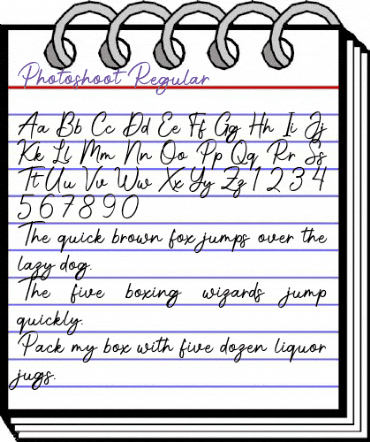 Photoshoot Regular
Aa Bb Cc Dd Ee Ff Gg Hh Ii Jj
Kk Ll Mm Nn Oo Pp Qq Rr Ss
Tt Uu Vv Ww Xx Yy Zz 1 2 3 4
5 6 7 8 9 0
The quick brown fox jumps over the
lazy dog.
The five boxing wizards jump
quickly.
Pack my box with five dozen liquor
jugs.